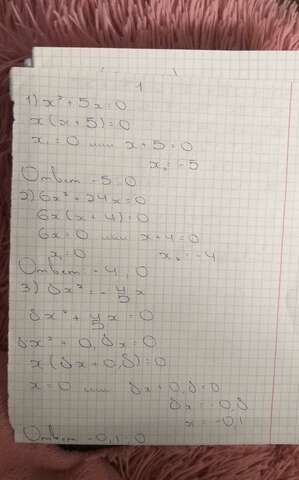 1
1) x² + 5x = 0
x(x + 5) = 0
x₁ = 0 или x + 5 = 0
x₂ = -5
Ответ: -5; 0
2) 6x² + 24x = 0
6x(x + 4) = 0
6x = 0 или x + 4 = 0
x₁ = 0 x₂ = -4
Ответ: -4; 0
3) 8x² = -4/5 x
8x² + 4/5 x = 0
8x² + 0,8x = 0
x(8x + 0,8) = 0
x = 0 или 8x + 0,8 = 0
8x = -0,8
x = -0,1
Ответ -0,1; 0